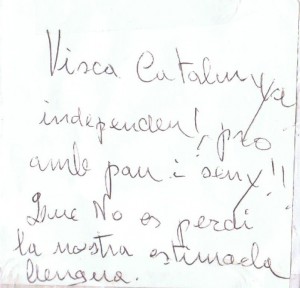 Visca Catalunya
independen!, pro
amb pau i seny!!
Que No es perdi
la nostra estimada
llengua.